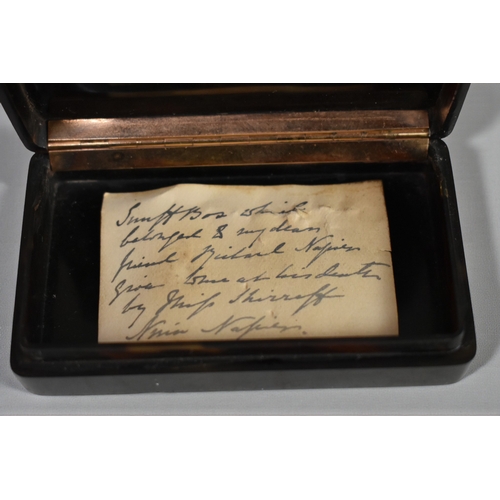 Snuff Box which
belonged to my dear
friend Richard Napier
given to me at his death
by Miss Shirreff
Napier.